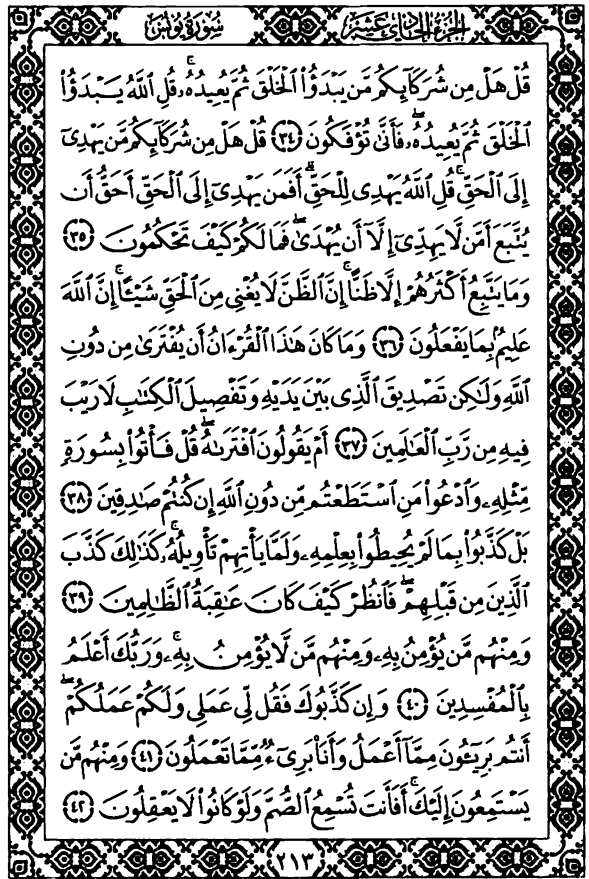 الجزء الحادي عشر سورة يونس
قُلْ هَلْ مِن شُرَكَآئِكُم مَّن يَبْدَؤُا۟ ٱلْخَلْقَ ثُمَّ يُعِيدُهُۥ ۚ قُلِ ٱللَّهُ يَبْدَؤُا۟
ٱلْخَلْقَ ثُمَّ يُعِيدُهُۥ ۖ فَأَنَّىٰ تُؤْفَكُونَ ٣٤ قُلْ هَلْ مِن شُرَكَآئِكُم مَّن يَهْدِىٓ
إِلَى ٱلْحَقِّ ۚ قُلِ ٱللَّهُ يَهْدِى لِلْحَقِّ ۗ أَفَمَن يَهْدِىٓ إِلَى ٱلْحَقِّ أَحَقُّ أَن
يُتَّبَعَ أَمَّن لَّا يَهِدِّىٓ إِلَّآ أَن يُهْدَىٰ ۖ فَمَا لَكُمْ كَيْفَ تَحْكُمُونَ ٣٥
وَمَا يَتَّبِعُ أَكْثَرُهُمْ إِلَّا ظَنًّا ۚ إِنَّ ٱلظَّنَّ لَا يُغْنِى مِنَ ٱلْحَقِّ شَيْـًٔا ۚ إِنَّ ٱللَّهَ
عَلِيمٌۢ بِمَا يَفْعَلُونَ ٣٦ وَمَا كَانَ هَـٰذَا ٱلْقُرْءَانُ أَن يُفْتَرَىٰ مِن دُونِ
ٱللَّهِ وَلَـٰكِن تَصْدِيقَ ٱلَّذِى بَيْنَ يَدَيْهِ وَتَفْصِيلَ ٱلْكِتَـٰبِ لَا رَيْبَ
فِيهِ مِن رَّبِّ ٱلْعَـٰلَمِينَ ٣٧ أَمْ يَقُولُونَ ٱفْتَرَىٰهُ ۖ قُلْ فَأْتُوا۟ بِسُورَةٍ
مِّثْلِهِۦ وَٱدْعُوا۟ مَنِ ٱسْتَطَعْتُم مِّن دُونِ ٱللَّهِ إِن كُنتُمْ صَـٰدِقِينَ ٣٨
بَلْ كَذَّبُوا۟ بِمَا لَمْ يُحِيطُوا۟ بِعِلْمِهِۦ وَلَمَّا يَأْتِهِمْ تَأْوِيلُهُۥ ۚ كَذَٰلِكَ كَذَّبَ
ٱلَّذِينَ مِن قَبْلِهِمْ ۖ فَٱنظُرْ كَيْفَ كَانَ عَـٰقِبَةُ ٱلظَّـٰلِمِينَ ٣٩
وَمِنْهُم مَّن يُؤْمِنُ بِهِۦ وَمِنْهُم مَّن لَّا يُؤْمِنُ بِهِۦ ۚ وَرَبُّكَ أَعْلَمُ
بِٱلْمُفْسِدِينَ ٤٠ وَإِن كَذَّبُوكَ فَقُل لِّى عَمَلِى وَلَكُمْ عَمَلُكُمْ ۖ
أَنتُم بَرِيٓـُٔونَ مِمَّآ أَعْمَلُ وَأَنَا۠ بَرِىٓءٌ مِّمَّا تَعْمَلُونَ ٤١ وَمِنْهُم مَّن
يَسْتَمِعُونَ إِلَيْكَ ۚ أَفَأَنتَ تُسْمِعُ ٱلصُّمَّ وَلَوْ كَانُوا۟ لَا يَعْقِلُونَ ٤٢
٢١٣